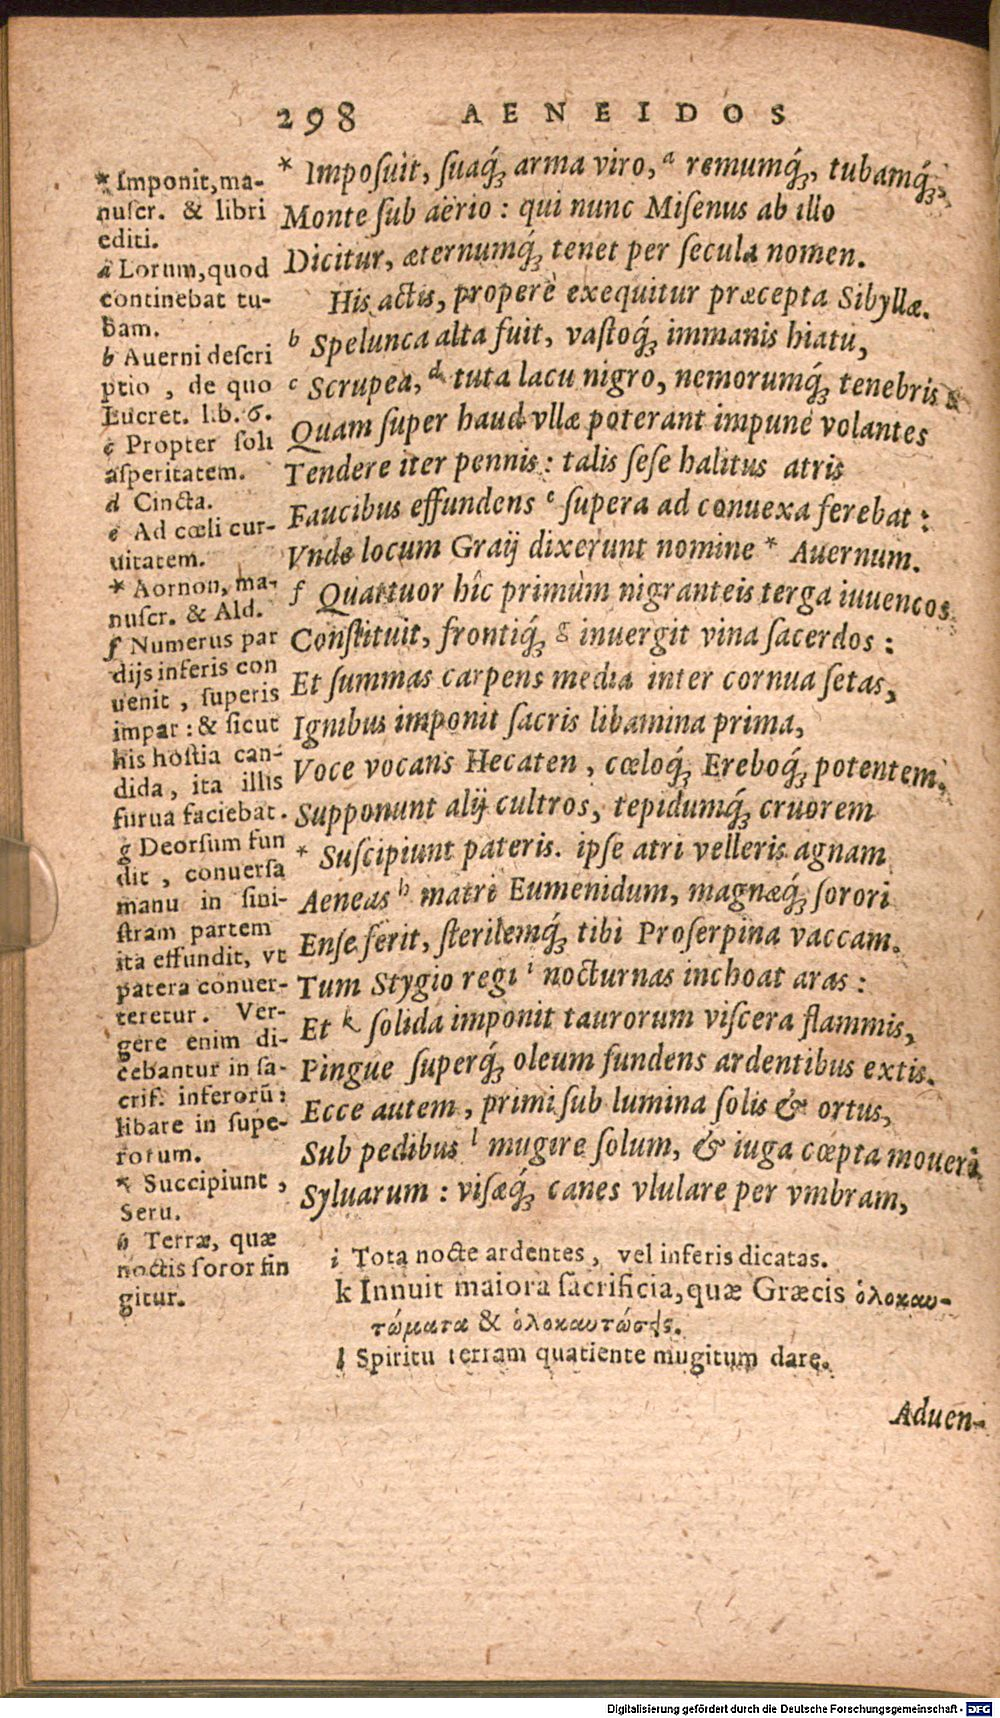 298 AENEIDOS
* Imposuit, suaq́; arma viro, a remumq́;, tubamq́;,
Monte sub aërio : qui nunc Misenus ab illo
Dicitur, æternumq́; tenet per secula nomen.
His actis, properè exequitur præcepta Sibyllæ.
b Spelunca alta fuit, vastoq́; immanis hiatu,
c Scrupea, d tuta lacu nigro, nemorumq́; tenebris:
Quam super haud vllæ poterant impunè volantes
Tendere iter pennis : talis sese halitus atris
Faucibus effundens e supera ad conuexa ferebat :
Vnde locum Graij dixerunt nomine * Auernum.
f Quattuor hîc primùm nigranteis terga iuuencos
Constituit, frontiq́; g inuergit vina sacerdos :
Et summas carpens media inter cornua setas,
Ignibus imponit sacris libamina prima,
Voce vocans Hecaten, cœloq́; Ereboq́; potentem.
Supponunt alij cultros, tepidumq́; cruorem
* Suscipiunt pateris. ipse atri velleris agnam
Aeneas h matri Eumenidum, magnæq́; sorori
Ense ferit, sterilemq́; tibi Proserpina vaccam.
Tum Stygio regi i nocturnas inchoat aras :
Et k solida imponit taurorum viscera flammis,
Pingue superq́; oleum fundens ardentibus extis.
Ecce autem, primi sub lumina solis & ortus,
Sub pedibus l mugire solum, & iuga cœpta moueri
Syluarum : visæq́; canes vlulare per vmbram,
* Imponit, ma-
nuscr. & libri
editi.
a Lorum, quod
continebat tu-
bam.
b Auerni descri
ptio, de quo
Lucret. lib. 6.
c Propter soli
asperitatem.
d Cincta.
e Ad cœli cur-
uitatem.
* Aornon, ma-
nuscr. & Ald.
f Numerus par
dijs inferis con
uenit, superis
impar : & sicut
his hostia can-
dida, ita illis
furua faciebat.
g Deorsum fun
dit, conuersa
manu in sini-
stram partem
ita effundit, vt
patera conuer-
teretur. Ver-
gere enim di-
cebantur in sa-
crif. inferorū:
libare in supe-
rorum.
* Succipiunt,
Seru.
h Terræ, quæ
noctis soror fin
gitur.
i Tota nocte ardentes, vel inferis dicatas.
k Innuit maiora sacrificia, quæ Græcis ὁλοκαυ-
τώματα & ὁλοκαυτώσεις.
l Spiritu terram quatiente mugitum dare.
Aduen-
Digitalisierung gefördert durch die Deutsche Forschungsgemeinschaft - DFG